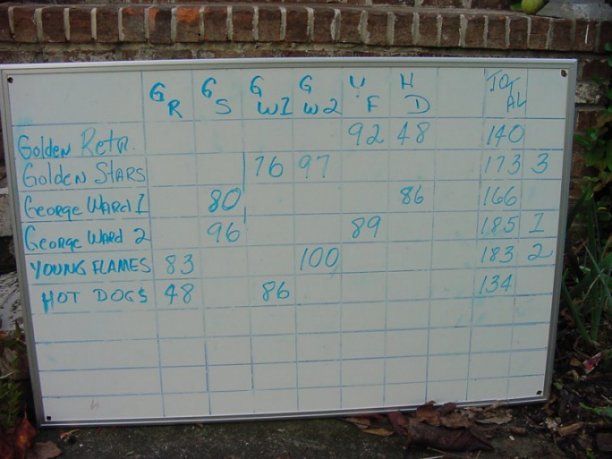 G R G S G W1 G W2 Y F H D TOTAL
Golden Retr. 92 48 140
Golden STARS 76 97 173 3
George Ward 1 80 86 166
George Ward 2 96 89 185 1
YOUNG FLAMES 83 100 183 2
HOT DOGS 48 86 134